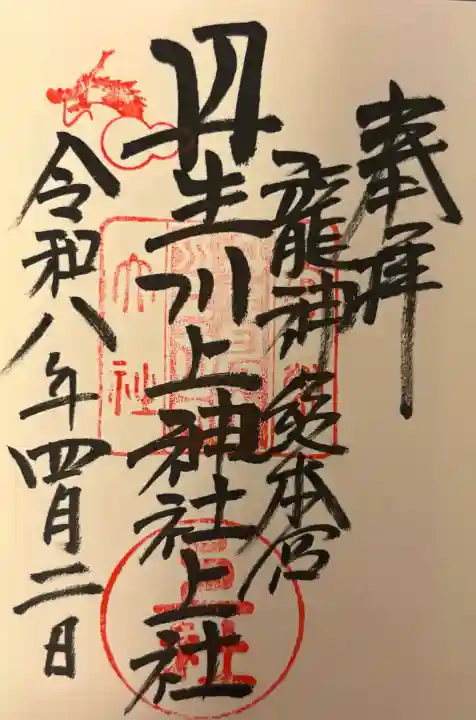 奉拝
龍神総本宮
丹生川上神社上社
令和八年四月二日
上社